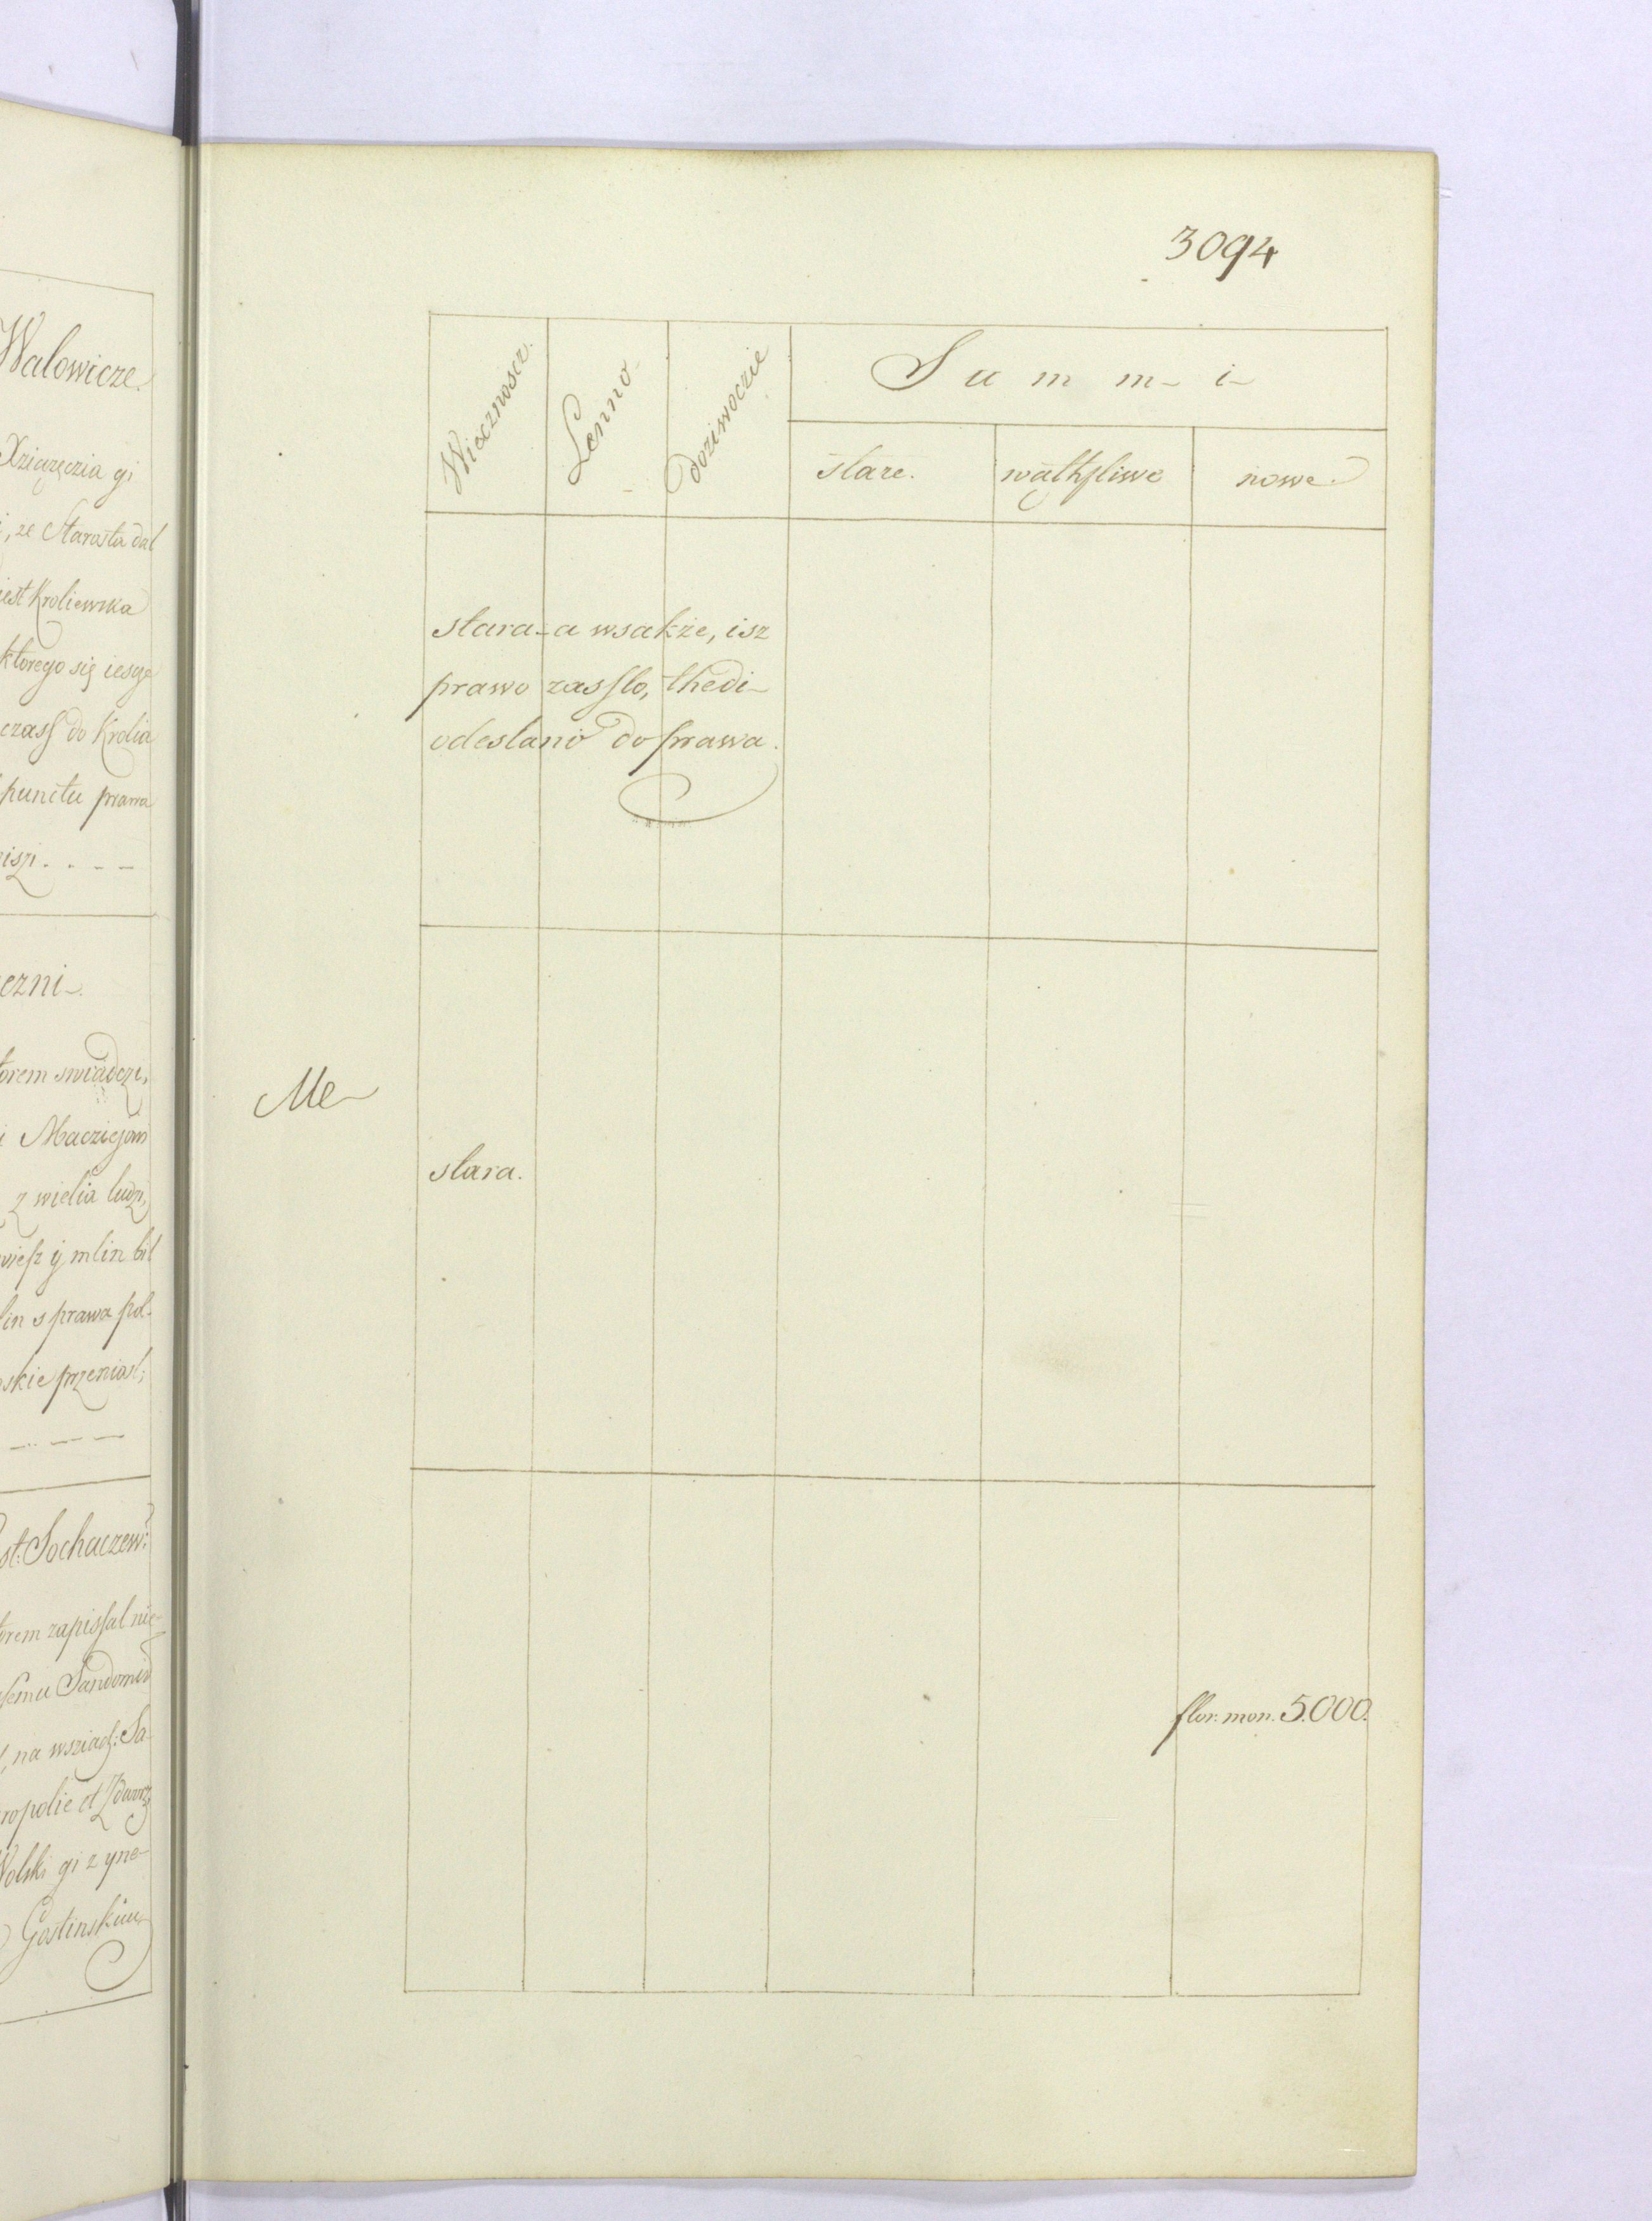 Walowicze.
Xziązęczia gi
, ze Starosta dal
iest Kroliewska
ktorego się iesge
czasſ do Krolia
punctu prawa
iszi . . - -
ezni-
torem swiadczi,
i Macziejowi
z wielia ludzi,
wiesz ij mlin bil
lin s prawa pol-
skie przeniosl;
st: Sochaczew:
torem zapisſal nie-
semu Sandomir
, na wsziach: Sa-
ropolie et Zdawrz
Wolski gi z yne-
Gostinskim
3094
Wiecznoscz. Lenno. Doziwoczie Summi-
stare. wąthpliwe nowe.
stara- a wsakże, isz
prawo zasſlo, thedi-
odeslano do prawa.
Me
stara.
flor: mon. 5.000.